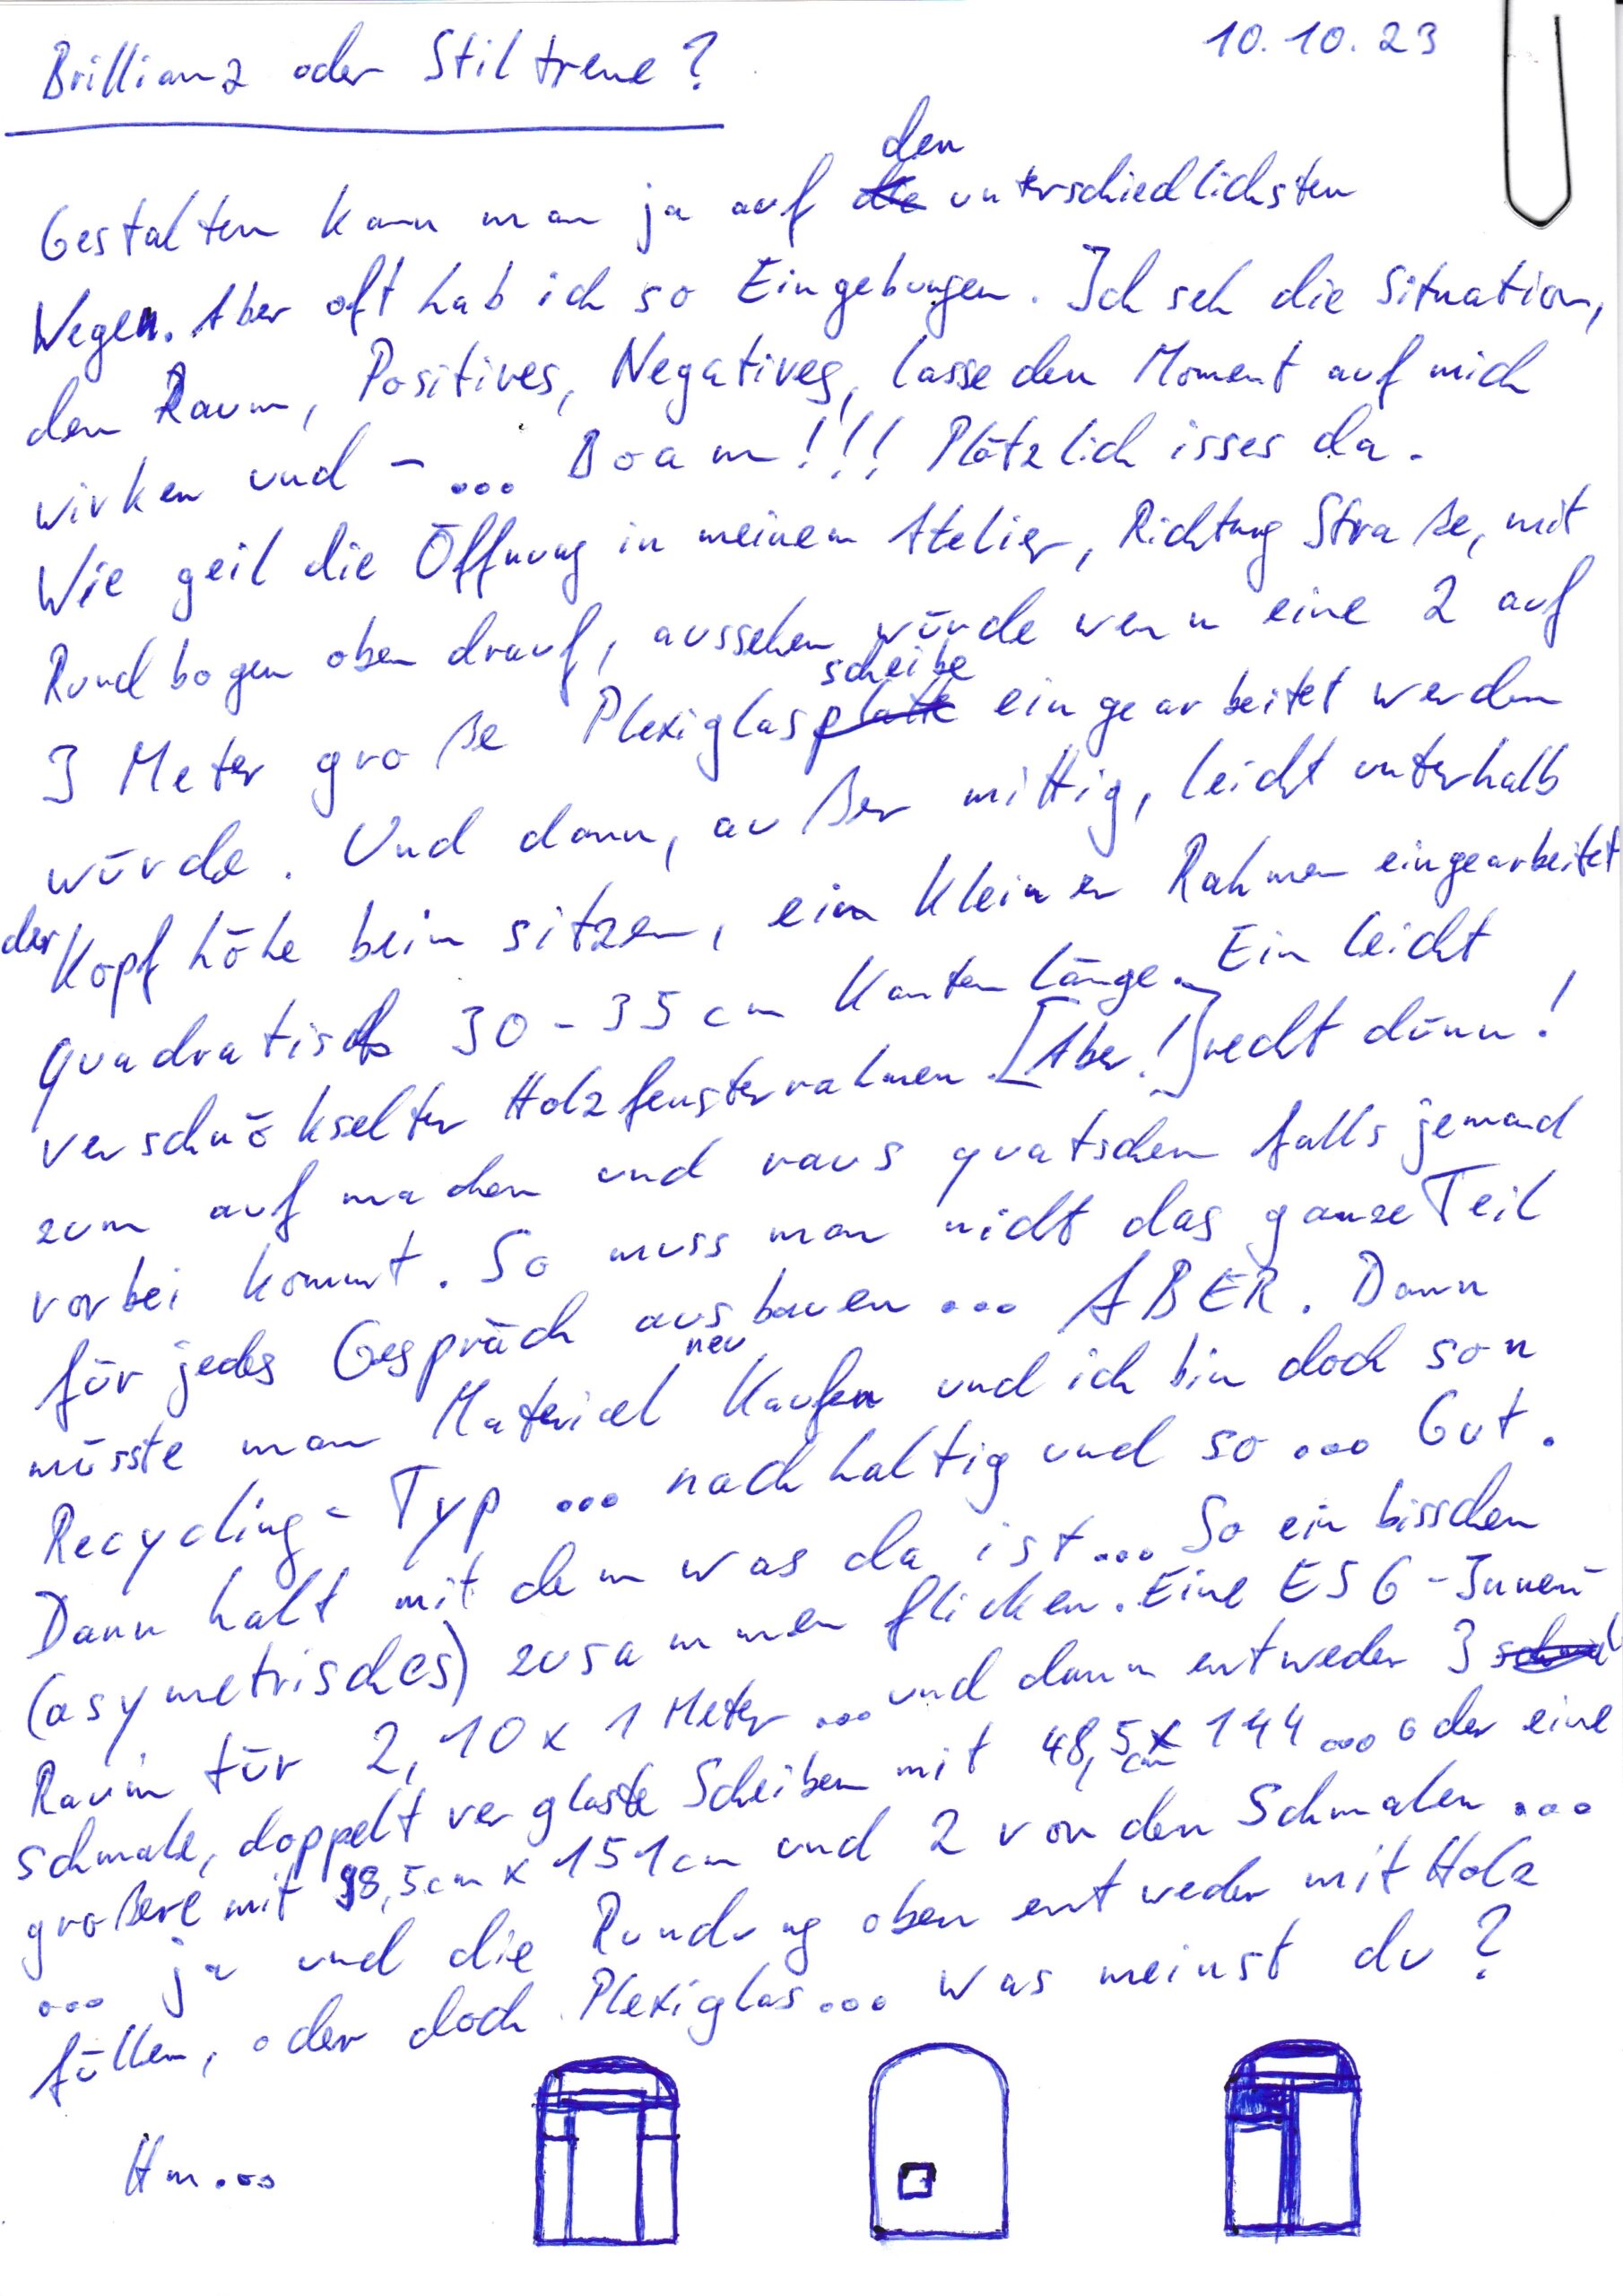 10.10.23
Brillianz oder Stiltreue?
Gestalten kann man ja auf die den unterschiedlichsten
Wegen. Aber oft hab ich so Eingebungen. Ich seh die Situation,
den Raum, Positives, Negatives, lasse den Moment auf mich
wirken und - ... Boam!!! Plötzlich isses da.
Wie geil die Öffnung in meinem Atelier, Richtung Straße, mit
Rundbogen oben drauf, aussehen würde wenn eine 2 auf
3 Meter große Plexiglasplatte scheibe eingearbeitet werden
würde. Und dann, außer mittig, leicht unterhalb
der Kopfhöhe beim sitzen, ein kleiner Rahmen eingearbeitet
quadratisch 30-35 cm Kantenlänge. Ein leicht
verschnökselter Holzfensterrahmen. [Aber!] recht dünn!
zum auf machen und raus quatschen falls jemand
vorbei kommt. So muss man nicht das ganze Teil
für jedes Gespräch ausbauen ... ABER. Dann
müsste man Material neu kaufen und ich bin doch son
Recycling-Typ ... nachhaltig und so ... Gut.
Dann halt mit dem was da ist... So ein bisschen
(asymetrisches) zusammen flicken. Eine ESG-Innen-
Raum tür 2,10 x 1 Meter ... und dann entweder 3
schmale, doppelt verglaste Scheiben mit 48,5 cm x 144 ... oder eine
größere mit 98,5cm x 151cm und 2 von den Schmalen ...
... ja und die Rundung oben entweder mit Holz
füllen, oder doch Plexiglas... was meinst du?
Hm...